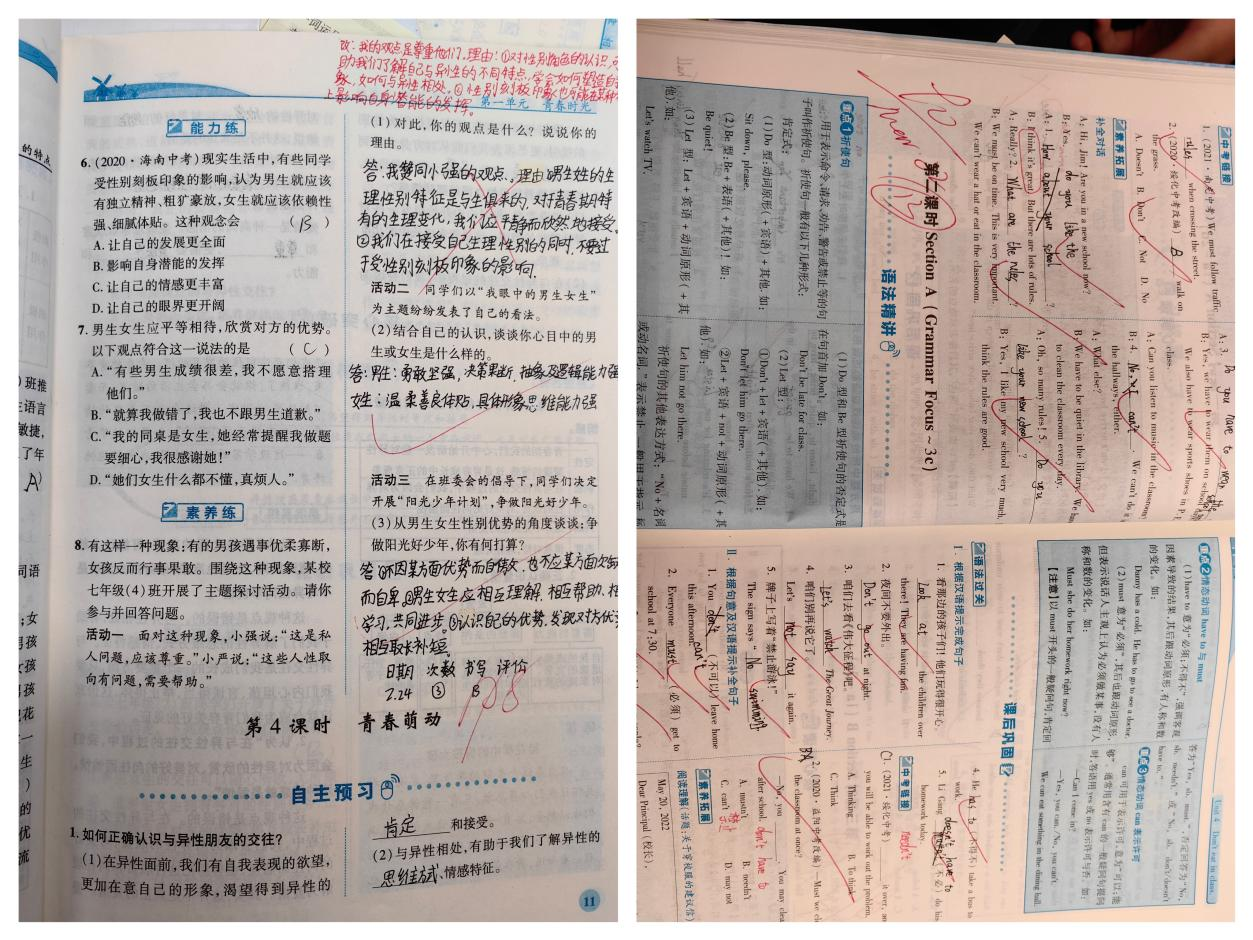 改:我的观点是尊重他们.理由:①对性别角色的认识,可
助我们了解自己与异性的不同特点,学会如何塑造自
象,如何与异性相处,②性别刻板印象也可能在某种
上影响自身潜能的发挥.
第一单元 青春时光
能力练
6.(2020·海南中考)现实生活中,有些同学
受性别刻板印象的影响,认为男生就应该
有独立精神、粗犷豪放,女生就应该依赖性
强、细腻体贴。这种观念会 ( B )
A.让自己的发展更全面
B.影响自身潜能的发挥
C.让自己的情感更丰富
D.让自己的眼界更开阔
7.男生女生应平等相待,欣赏对方的优势。
以下观点符合这一说法的是 ( C )
A.“有些男生成绩很差,我不愿意搭理
他们。”
B.“就算我做错了,我也不跟男生道歉。”
C.“我的同桌是女生,她经常提醒我做题
要细心,我很感谢她!”
D.“她们女生什么都不懂,真烦人。”
素养练
8.有这样一种现象:有的男孩遇事优柔寡断,
女孩反而行事果敢。围绕这种现象,某校
七年级(4)班开展了主题探讨活动。请你
参与并回答问题。
活动一 面对这种现象,小强说:“这是私
人问题,应该尊重。”小严说:“这些人性取
向有问题,需要帮助。”
(1)对此,你的观点是什么?说说你的
理由。
答:我赞同小强的观点。理由:①男生女生的生
理性别特征是与生俱来的,对于青春期特
有的生理变化,我们应平静而欣然地接受.
②我们在接受自己生理性别的同时,不要过
于受性别刻板印象的影响.
活动二 同学们以“我眼中的男生女生”
为主题纷纷发表了自己的看法。
(2)结合自己的认识,谈谈你心目中的男
生或女生是什么样的。
答:男生:勇敢坚强,决策果断,抽象及逻辑能力强
女性:温柔善良体贴,具体形象思维能力强
活动三 在班委会的倡导下,同学们决定
开展“阳光少年计划”,争做阳光好少年。
(3)从男生女生性别优势的角度谈谈:争
做阳光好少年,你有何打算?
答:①不因某方面优势而自傲,也不应某方面欠缺
而自卑.②男生女生应相互理解,相互帮助,相
学习,共同进步.③认识自己的优势,发现对方优
相互取长补短.
日期 次数 书写 评价
7.24 ③ B
第4课时 青春萌动
自主预习
1.如何正确认识与异性朋友的交往?
(1)在异性面前,我们有自我表现的欲望,
更加在意自己的形象,渴望得到异性的
肯定 和接受。
(2)与异性相处,有助于我们了解异性的
思维方式、情感特征。
11
中考链接
1.(2021·南充中考)We must follow traffic
rules when crossing the street.
2.(2020·绥化中考改编) B walk on
the grass.
A. Doesn't B. Don't C. Not D. No
素养拓展
补全对话
A: Hi, Jim! Are you in a new school now?
B: Yes.
A: 1. How about your school ?
B: I think it's great! But there are lots of rules.
A: Really? 2. What are the rules ?
B: We must be on time. This is very important.
We can't wear a hat or eat in the classroom.
A: 3. Do you have to wear the
B: Yes, we have to wear them on school
We also have to wear sports shoes in P.E
class.
A: Can you listen to music in the classroom
B: 4. No, we can't . We can't do it
the hallways, either.
A: What else?
B: We have to be quiet in the library. We ha
to clean the classroom every day.
A: Oh, so many rules! 5. Do you
like your new school ?
B: Yes, I like my new school very much.
think the rules are good.
第二课时 Section A (Grammar Focus~3c)
语法精讲
重点1 祈使句
用于表示命令、请求、劝告、警告或禁止等的句
子叫作祈使句。祈使句一般有以下几种形式:
肯定形式:
(1)Do 型:动词原形(+宾语)+其他. 如:
Sit down, please.
(2)Be 型:Be+表语(+其他)! 如:
Be quiet!
(3)Let 型:Let+宾语+动词原形(+其
他). 如:
Let's watch TV.
(1)Do 型和 Be 型祈使句的否定式是
在句首加 Don't。如:
Don't be late for class.
(2)Let 型:
①Don't+let+宾语(+其他). 如:
Don't let him go there.
②Let+宾语+not+动词原形(+其
他). 如:
Let him not go there.
祈使句的其他表达方式:“No+名词
Unit 4 Don't eat in class.
重点2 情态动词 have to 与 must
(1)have to 意为“必须;不得不”,强调客观
因素导致的结果,其后跟动词原形,有人称和数
的变化。如:
Danny has a cold. He has to go to see a doctor.
(2)must 意为“必须”,其后也跟动词原形,
但表示说话人主观上认为必须做某事,没有人
称和数的变化。如:
Must she do her homework right now?
【注意】以 must 开头的一般疑问句,肯定回
答为“Yes, sb. must.”,否定回答为“No,
sb. needn't.”或“No, sb. don't/doesn't
have to.”
重点3 情态动词 can 表示许可
can 可用于表示许可,意为“可以;能
够”。通常用含有 can 的一般疑问句提问
时,答语用 yes 或 no 表示许可与否。如:
—Can I come in?
—Yes, you can./No, you can't.
We can eat something in the dining hall.
课后巩固
语法过关
Ⅰ. 根据汉语提示完成句子
1. 看那边的孩子们!他们玩得很开心。
Look at the children over
there! They are having fun.
2. 夜间不要外出。
Don't go out at night.
3. 咱们去看《伟大征程》吧。
Let's watch The Great Journey.
4. 咱们别再说它了。
Let's not say it again.
5. 牌子上写着“禁止游泳!”
The sign says “ No swimming .”
Ⅱ. 根据句意及汉语提示补全句子
1. You can't (不可以) leave home
this afternoon.
2. Everyone must (必须) get to
school at 7:30.
4. He has to (不得不) take a bus to
work.
5. Li Gang doesn't have to (不必) do his
homework today.
中考链接
C 1. (2021·绥化中考) it over, an
you will be able to work out the problem.
A. Thinking B. To think
C. Think
2. (2020·益阳中考改编)—Must we cle
the classroom at once?
—No, you . You may clea
after school. don't have to
A. mustn't B. needn't
C. can't D. may not
素养拓展
阅读理解(话题:关于穿校服的建议信)
May 20, 2022
Dear Principal (校长),